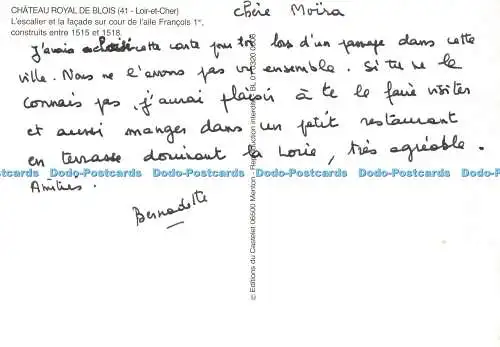 CHÂTEAU ROYAL DE BLOIS (41 - Loir-et-Cher)
L'escalier et la façade sur cour de l'aile François 1er,
construits entre 1515 et 1518.
Chère Moïra
J'avais choisi cette carte pour toi lors d'un passage dans cette
ville. Nous ne l'avons pas vu ensemble. Si tu ne le
connais pas, j'aurai plaisir à te le faire visiter
et aussi manger dans un petit restaurant
en terrasse dominant la Loire, très agréable.
Dodo-Postcards Dodo-Postcards Dodo-Postcards Dodo-Postcards Dodo-Postcards Dodo-Postcards
Amitiés.
Bernadette
© Editions du Castelet 06500 Menton - Reproduction interdite